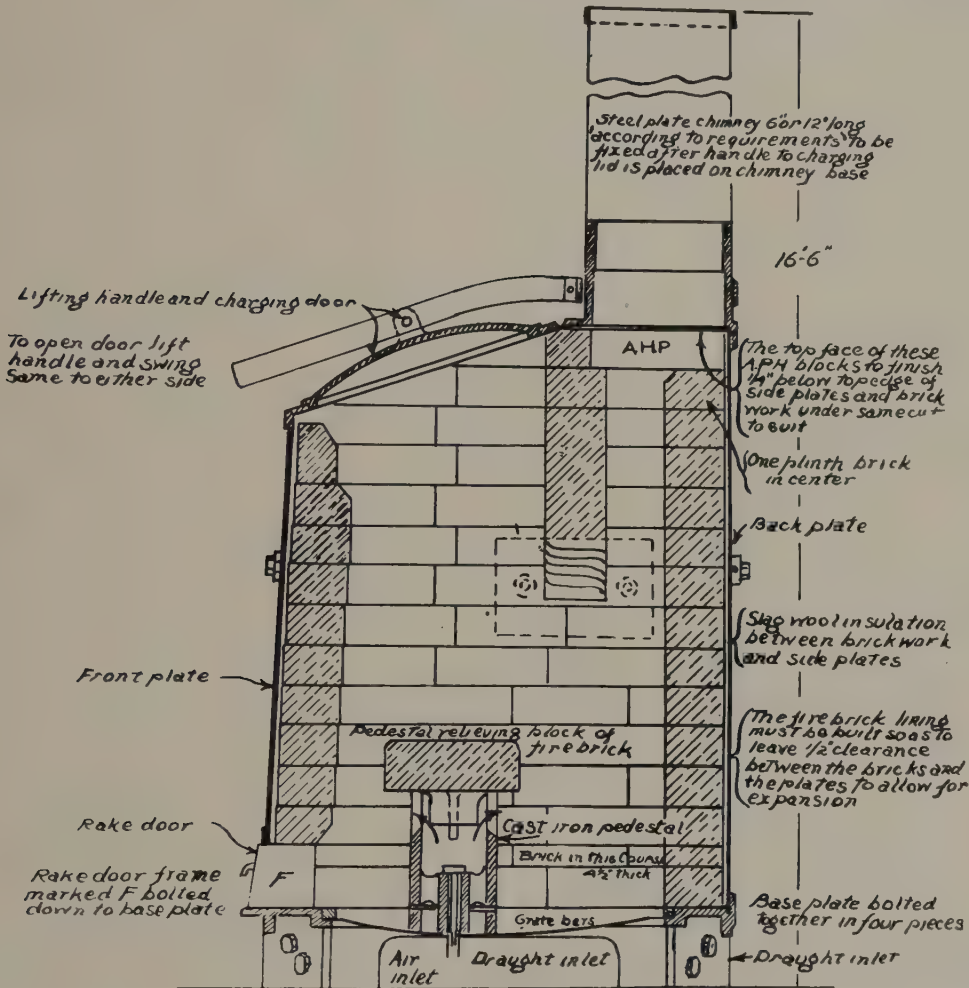 Steel plate chimney 6' or 12' long
according to requirements to be
fixed after handle to charging
lid is placed on chimney base
16'-6"
Lifting handle and charging door
To open door lift
handle and swing
Same to either side
AHP
The top face of these
APH blocks to finish
1/4" below top edge of
side plates and brick
work under same cut
to suit
One plinth brick
in center
Back plate
Slag wool insulation
between brickwork
and side plates
Front plate
Pedestal relieving block of
firebrick
The fire brick lining
must be built so as to
leave 1/2" clearance
between the bricks and
the plates to allow for
expansion
Rake door
Cast iron pedestal
Brick in this Course
4 1/2" thick
F
Rake door frame
marked F bolted
down to base plate
Grate bars
Base plate bolted
together in four pieces
Air
inlet
Draught inlet
Draught inlet